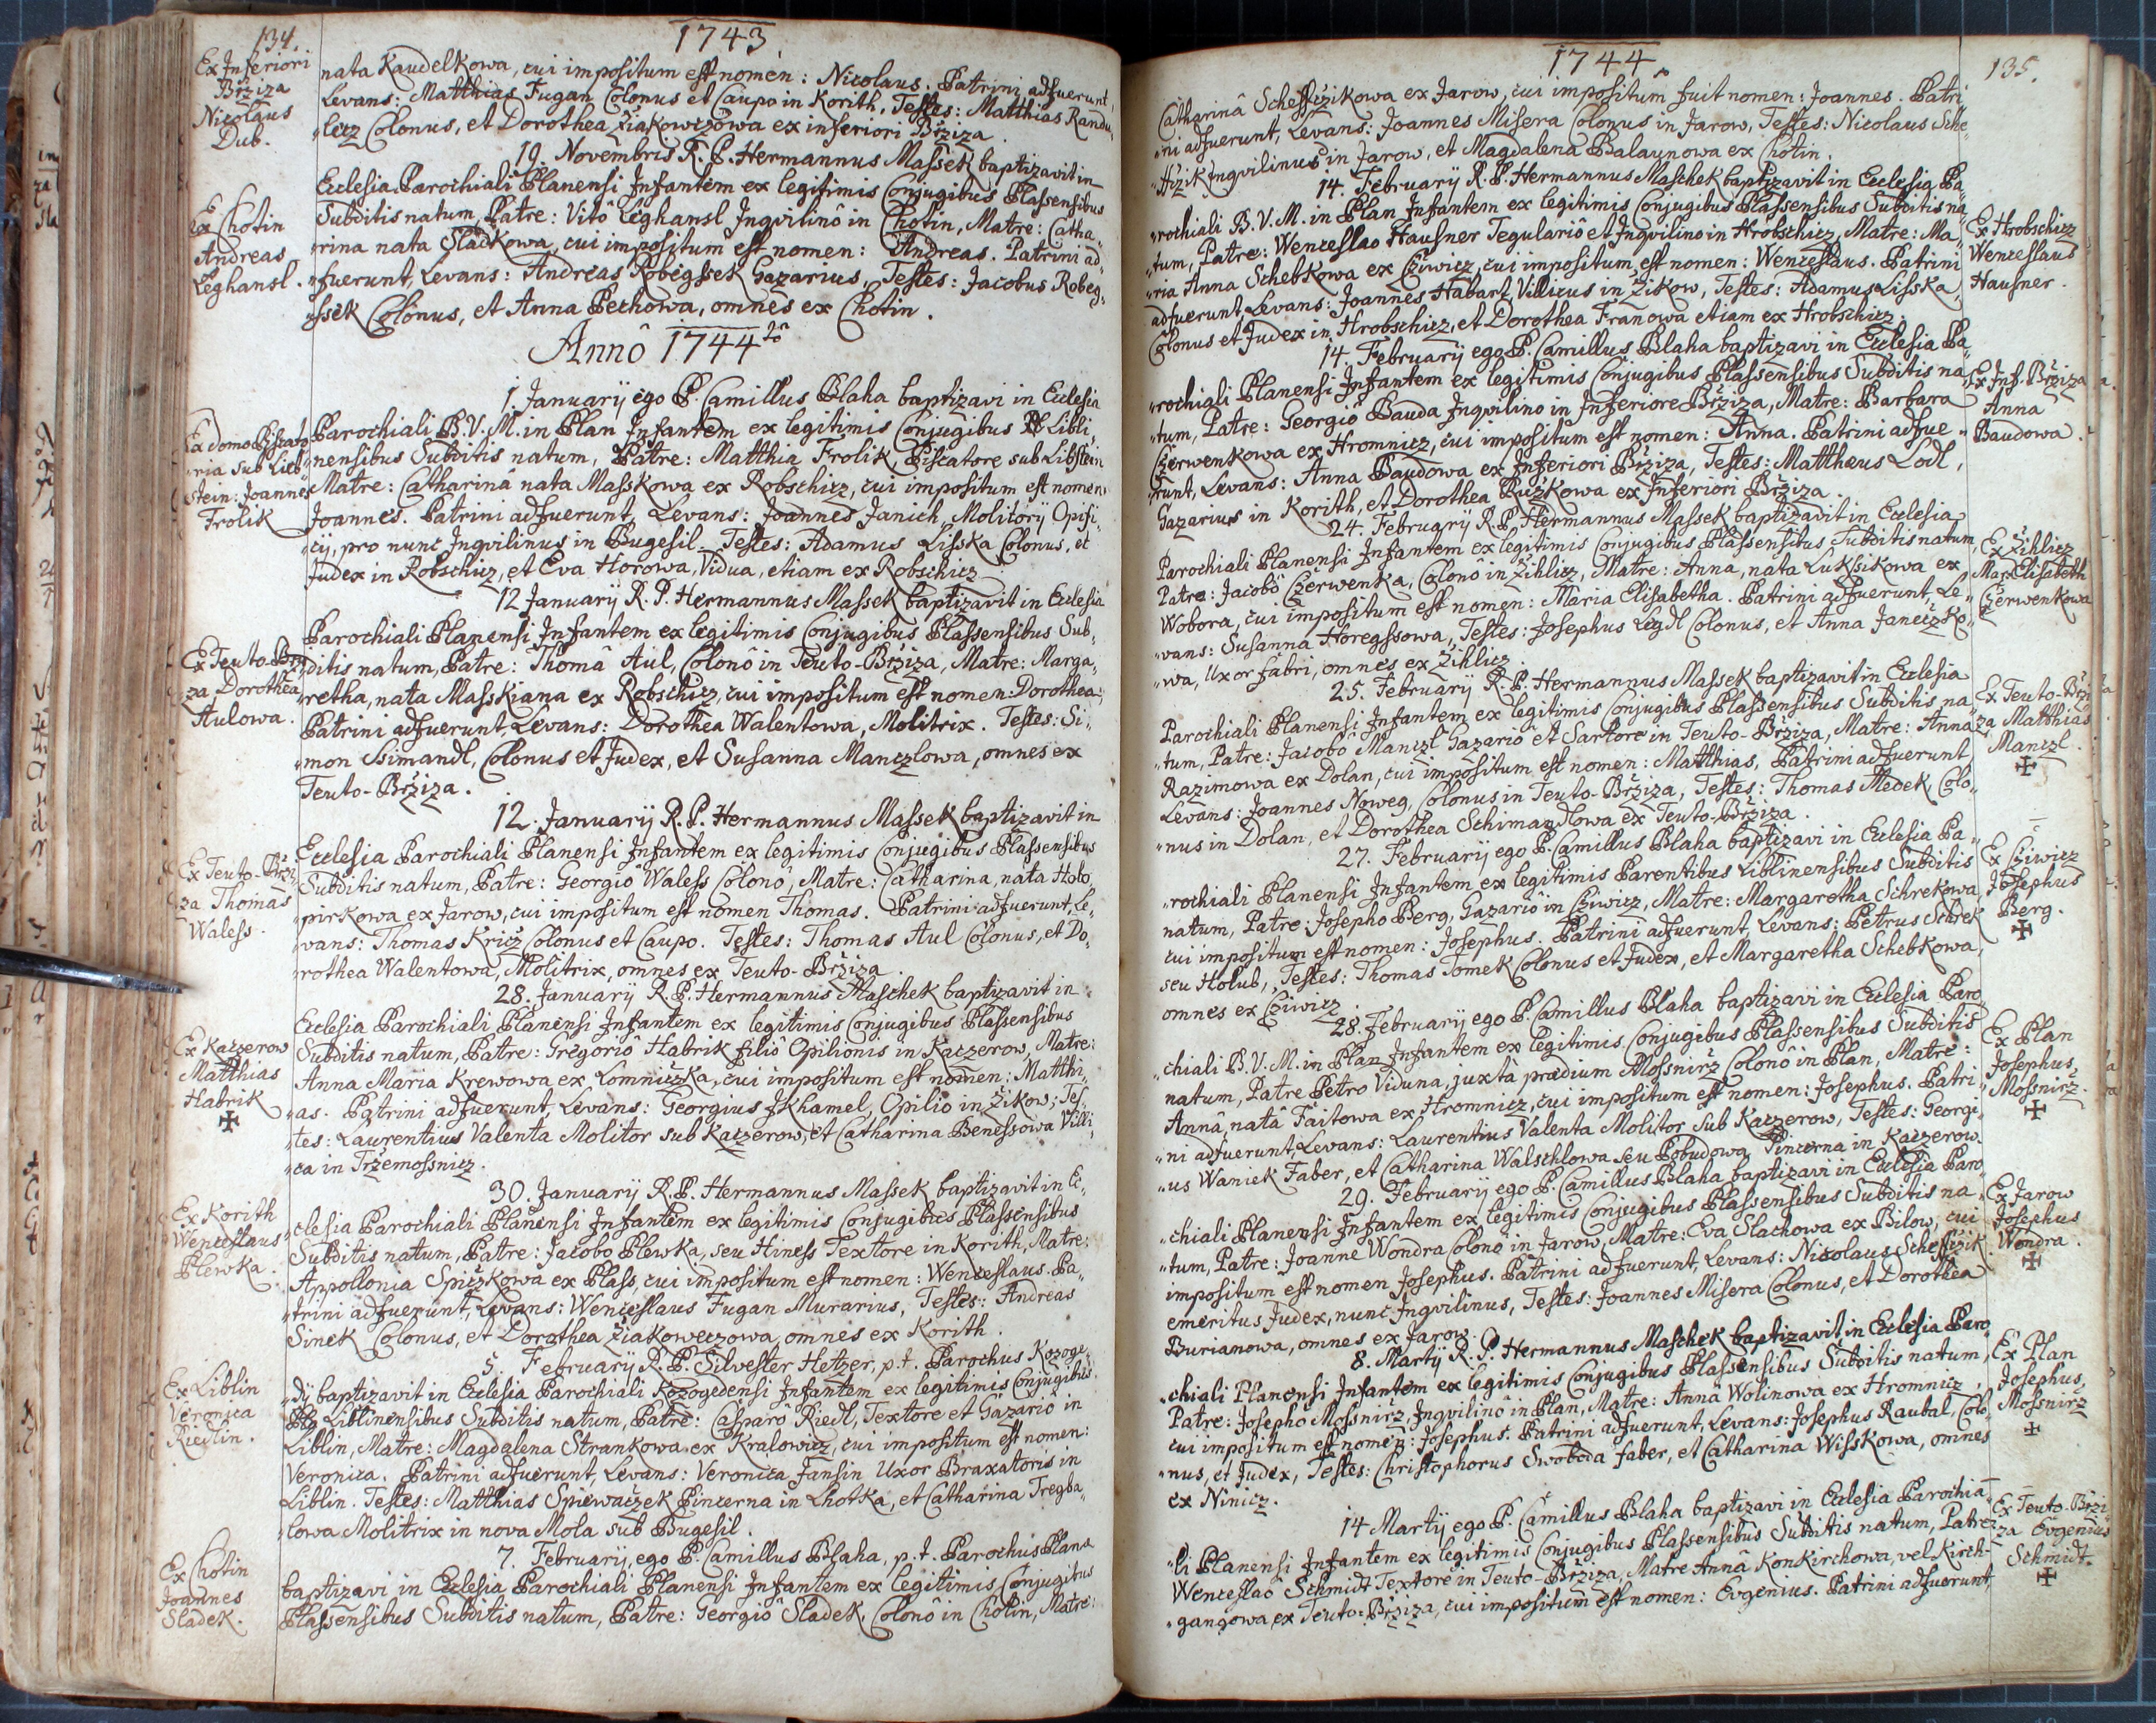 134.
1743
Ex Inferiori
Bržiza
Nicolaus
Dub.
nata Kaudelkowa, cui impositum est nomen: Nicolaus. Patrini adfuerunt,
Levans: Matthias Fugan Colonus et Caupo in Korith, Testes: Matthias Randu,
„licz Colonus, et Dorothea Žiakowczowa ex inferiori Bržiza.
19. Novembris R. P. Hermannus Massek baptizavit in
Ex Chotin
Andreas
Leghansl.
Ecclesia Parochiali Planensi Infantem ex legitimis Conjugibus Plassensibus
Subditis natum, Patre: Vitô Leghansl Inqvilinô in Chotin, Matre: Catha„
„rina nata Sladkowa, cui impositum est nomen: Andreas. Patrini ad„
„fuerunt, Levans: Andreas Robegssek Gazarius, Testes: Jacobus Robeg„
„ssek Colonus, et Anna Pechowa, omnes ex Chotin.
Annô 1744tô
1. Januarij ego P. Camillus Blaha baptizavi in Ecclesia
Ex domo Piscato
„ria sub Lieb„
„stein: Joannes
Frolik
Parochiali B. V. M. in Plan Infantem ex legitimis Conjugibus Libli„
„nensibus Subditis natum, Patre: Matthia Frolik, Piscatore sub Libstein
Matre: Catharinâ nata Masskowa ex Robschicz, cui impositum est nomen
Joannes. Patrini adfuerunt, Levans: Joannes Janich, Molitorij Opifi„
„cij, pro nunc Inqvilinus in Bugesil. Testes: Adamus Lisska Colonus, et
Judex in Robschicz, et Eva Horowa, Vidua, etiam ex Robschicz
12 Januarij R. P. Hermannus Massek baptizavit in Ecclesia
Ex Teuto-Brži
za Dorothea
Aulowa.
Parochiali Planensi Infantem ex legitimis Conjugibus Plassensibus Sub„
„ditis natum, Patre: Thomâ Aul, Colonô in Teuto-Bržiza, Matre: Marga„
„retha, nata Masskiana ex Robschicz, cui impositum est nomen: Dorothea.
Patrini adfuerunt, Levans: Dorothea Walentowa, Molitrix. Testes: Si„
„mon Ssimandl, Colonus et Judex, et Susanna Manczlowa, omnes ex
Teuto-Bržiza.
12. Januarij R. P. Hermannus Massek baptizavit in
Ex Teuto-Brži
za Thomas
Waless.
Ecclesia Parochiali Planensi Infantem ex legitimis Conjugibus Plassensibus
Subditis natum, Patre: Georgiô Waless Colonô, Matre: Catharina, nata Holo„
„pirkowa ex Jarow, cui impositum est nomen Thomas. Patrini adfuerunt, Le„
„vans: Thomas Kricz Colonus et Caupo. Testes: Thomas Aul Colonus, et Do„
„rothea Walentowa, Molitrix, omnes ex Teuto-Bržiza.
28. Januarij R. P. Hermannus Maschek baptizavit in
Ex Kaczerow
Matthias
Habrik
Ecclesia Parochiali Planensi Infantem ex legitimis Conjugibus Plassensibus
Subditis natum, Patre: Gregoriô Habrik filiô Opilionis in Kaczerow, Matre:
Anna Maria Krewowa ex Lomniczka, cui impositum est nomen: Matthi„
„as. Patrini adfuerunt, Levans: Georgius Jkhamel, Opilio in Žikow; Tes„
„tes: Laurentius Valenta Molitor sub Kaczerow, et Catharina Benessowa Villi„
„ca in Tržemossnicz.
30. Januarij R. P. Hermannus Massek baptizavit in Ec„
Ex Korith
Wenceslaus
Plewka.
„clesia Parochiali Planensi Infantem ex legitimis Conjugibus Plassensibus
Subditis natum, Patre: Jacobo Plewka, seu Hiness Textore in Korith, Matre:
Appollonia Spiczkowa ex Plass, cui impositum est nomen: Wenceslaus. Pa„
„trini adfuerunt, Levans: Wenceslaus Fugan Murarius, Testes: Andreas
Simek Colonus, et Dorothea Žiakoweczowa, omnes ex Korith.
5. Februarij R. P. Silvester Hetzer, p. t. Parochus Kozoge„
Ex Liblin
Veronica
Riedlin.
„dÿ baptizavit in Ecclesia Parochiali Kozogedensi Infantem ex legitimis Conjugibus
Liblinensibus Subditis natum, Patre: Casparô Riedl, Textore et Gazariô in
Liblin, Matre: Magdalena Strankowa ex Kralowicz, cui impositum est nomen:
Veronica. Patrini adfuerunt, Levans: Veronica Jansin Uxor Braxatoris in
Liblin. Testes: Matthias Spiewaczek Pincerna in Lhotka, et Catharina Tregba„
„lowa Molitrix in nova Mola sub Bugesil.
7. Februarij, ego P. Camillus Blaha, p. t. Parochus Plana
Ex Chotin
Joannes
Sladek.
baptizavi in Ecclesia Parochiali Planensi Infantem ex legitimis Conjugibus
Plassensibus Subditis natum, Patre: Georgiô Sladek, Colonô in Chotin, Matre:
1744
135.
Catharinâ Scheffczikowa ex Jarow, cui impositum fuit nomen: Joannes. Patri„
„ni adfuerunt, Levans: Joannes Misera Colonus in Jarow, Testes: Nicolaus Sche„
„ffczik Inqvilinus in Jarow, et Magdalena Balaunowa ex Chotin.
14. Februarij R. P. Hermannus Maschek baptizavit in Ecclesia Pa„
Ex Hrobschicz
Wenceslaus
Hausner.
„rochiali B. V. M. in Plan Infantem ex legitimis Conjugibus Plassensibus Subditis na„
„tum, Patre: Wenceslao Hausner Tegulariô et Inqvilino in Hrobschicz, Matre: Ma„
„ria Anna Schebkowa ex Cziwicz, cui impositum est nomen: Wenceslaus. Patrini
adfuerunt, Levans: Joannes Habart, Villicus in Žikow, Testes: Adamus Lisska
Colonus et Judex in Hrobschicz, et Dorothea Franowa etiam ex Hrobschicz.
14. Februarij ego P. Camillus Blaha baptizavi in Ecclesia Pa„
Ex Inf. Bržiza
Anna
Baudowa.
„rochiali Planensi Infantem ex legitimis Conjugibus Plassensibus Subditis na„
„tum, Patre: Georgiô Bauda Inqvilino in Inferiore Bržiza, Matre: Barbara
Czerwenkowa ex Hromnicz, cui impositum est nomen: Anna. Patrini adfue„
„runt, Levans: Anna Baudowa ex Inferiori Bržiza, Testes: Matthæus Lodl,
Gazarius in Korith, et Dorothea Ružkowa ex Inferiori Bržiza.
24. Februarij R. P. Hermannus Massek baptizavit in Ecclesia
Ex Žihlicz
Mar. Elisabeth
Czerwenkowa
Parochiali Planensi Infantem ex legitimis Conjugibus Plassensibus Subditis natum,
Patre: Jacobô Czerwenka, Colonô in Žihlicz, Matre: Anna, nata Luksikowa ex
Wobora, cui impositum est nomen: Maria Elisabetha. Patrini adfuerunt, Le„
„vans: Susanna Horegssowa, Testes: Josephus Legdl Colonus, et Anna Janeczko„
„wa, Uxor fabri, omnes ex Žihlicz.
25. Februarij R. P. Hermannus Massek baptizavit in Ecclesia
Ex Teuto-Brži
za Matthias
Manczl.
Parochiali Planensi Infantem ex legitimis Conjugibus Plassensibus Subditis na„
„tum, Patre: Jacobô Manczl Gazariô et Sartore in Teuto-Bržiza, Matre: Anna
Razimowa ex Dolan, cui impositum est nomen: Matthias. Patrini adfuerunt
Levans: Joannes Noweg, Colonus in Teuto-Bržiza, Testes: Thomas Medek, Colo„
„nus in Dolan, et Dorothea Schimandlowa ex Teuto-Bržiza.
27. Februarij ego P. Camillus Blaha baptizavi in Ecclesia Pa„
Ex Cziwicz
Josephus
Berg.
„rochiali Planensi Infantem ex legitimis Parentibus Liblinensibus Subditis
natum, Patre: Josepho Berg, Gazariô in Cziwicz, Matre: Margaretha Schrekowa,
cui impositum est nomen: Josephus. Patrini adfuerunt, Levans: Petrus Schrek
seu Holub, Testes: Thomas Tomek Colonus et Judex, et Margaretha Schebkowa,
omnes ex Cziwicz.
28. Februarij ego P. Camillus Blaha baptizavi in Ecclesia Paro„
Ex Plan
Josephus
Mossnirž.
„chiali B. V. M. in Plan Infantem ex legitimis Conjugibus Plassensibus Subditis
natum, Patre Petro Viduna, juxta prædium Mossnirž Colonô in Plan, Matre:
Annâ, natâ Faitowa ex Hromnicz, cui impositum est nomen: Josephus. Patri„
„ni adfuerunt, Levans: Laurentius Valenta Molitor sub Kaczerow, Testes: Georgi„
„us Waniek Faber, et Catharina Walschlowa seu Pobudowa Pincerna in Kaczerow.
29. Februarij ego P. Camillus Blaha baptizavi in Ecclesia Paro„
Ex Jarow
Josephus
Wondra.
„chiali Planensi Infantem ex legitimis Conjugibus Plassensibus Subditis na„
„tum, Patre: Joanne Wondra Colonô in Jarow, Matre: Eva Slachowa ex Bilow, cui
impositum est nomen Josephus. Patrini adfuerunt, Levans: Nicolaus Scheffczik
emeritus Judex, nunc Inqvilinus, Testes: Joannes Misera Colonus, et Dorothea
Burianowa, omnes ex Jarow.
8. Martij R. P. Hermannus Maschek baptizavit in Ecclesia Paro„
Ex Plan
Josephus
Mossnirž
„chiali Planensi Infantem ex legitimis Conjugibus Plassensibus Subditis natum,
Patre: Josepho Mossnirž, Inqvilinô in Plan, Matre: Annâ Wolinowa ex Hromnicz,
cui impositum est nomen: Josephus. Patrini adfuerunt, Levans: Josephus Raubal, Colo„
„nus, et Judex, Testes: Christophorus Swoboda faber, et Catharina Wisskowa, omnes
ex Ninicz.
14 Martij ego P. Camillus Blaha baptizavi in Ecclesia Parochia„
Ex Teuto-Brži
za Evgenius
Schmidt.
„li Planensi Infantem ex legitimis Conjugibus Plassensibus Subditis natum, Patre:
Wenceslaô Schmidt Textore in Teuto-Bržiza, Matre Annâ Konkirchowa, vel Kirch„
„gangowa ex Teuto-Bržiza, cui impositum est nomen: Evgenius. Patrini adfuerunt,